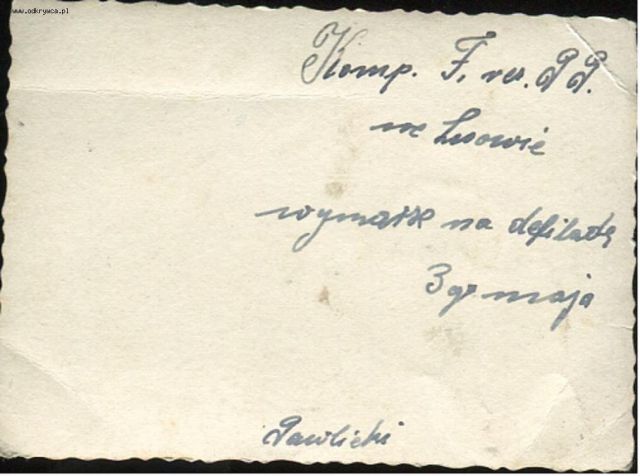 www.odkrywca.pl
Komp. F. rez. PP.
we Lwowie
wymarsz na defiladę
3go maja
Pawlicki